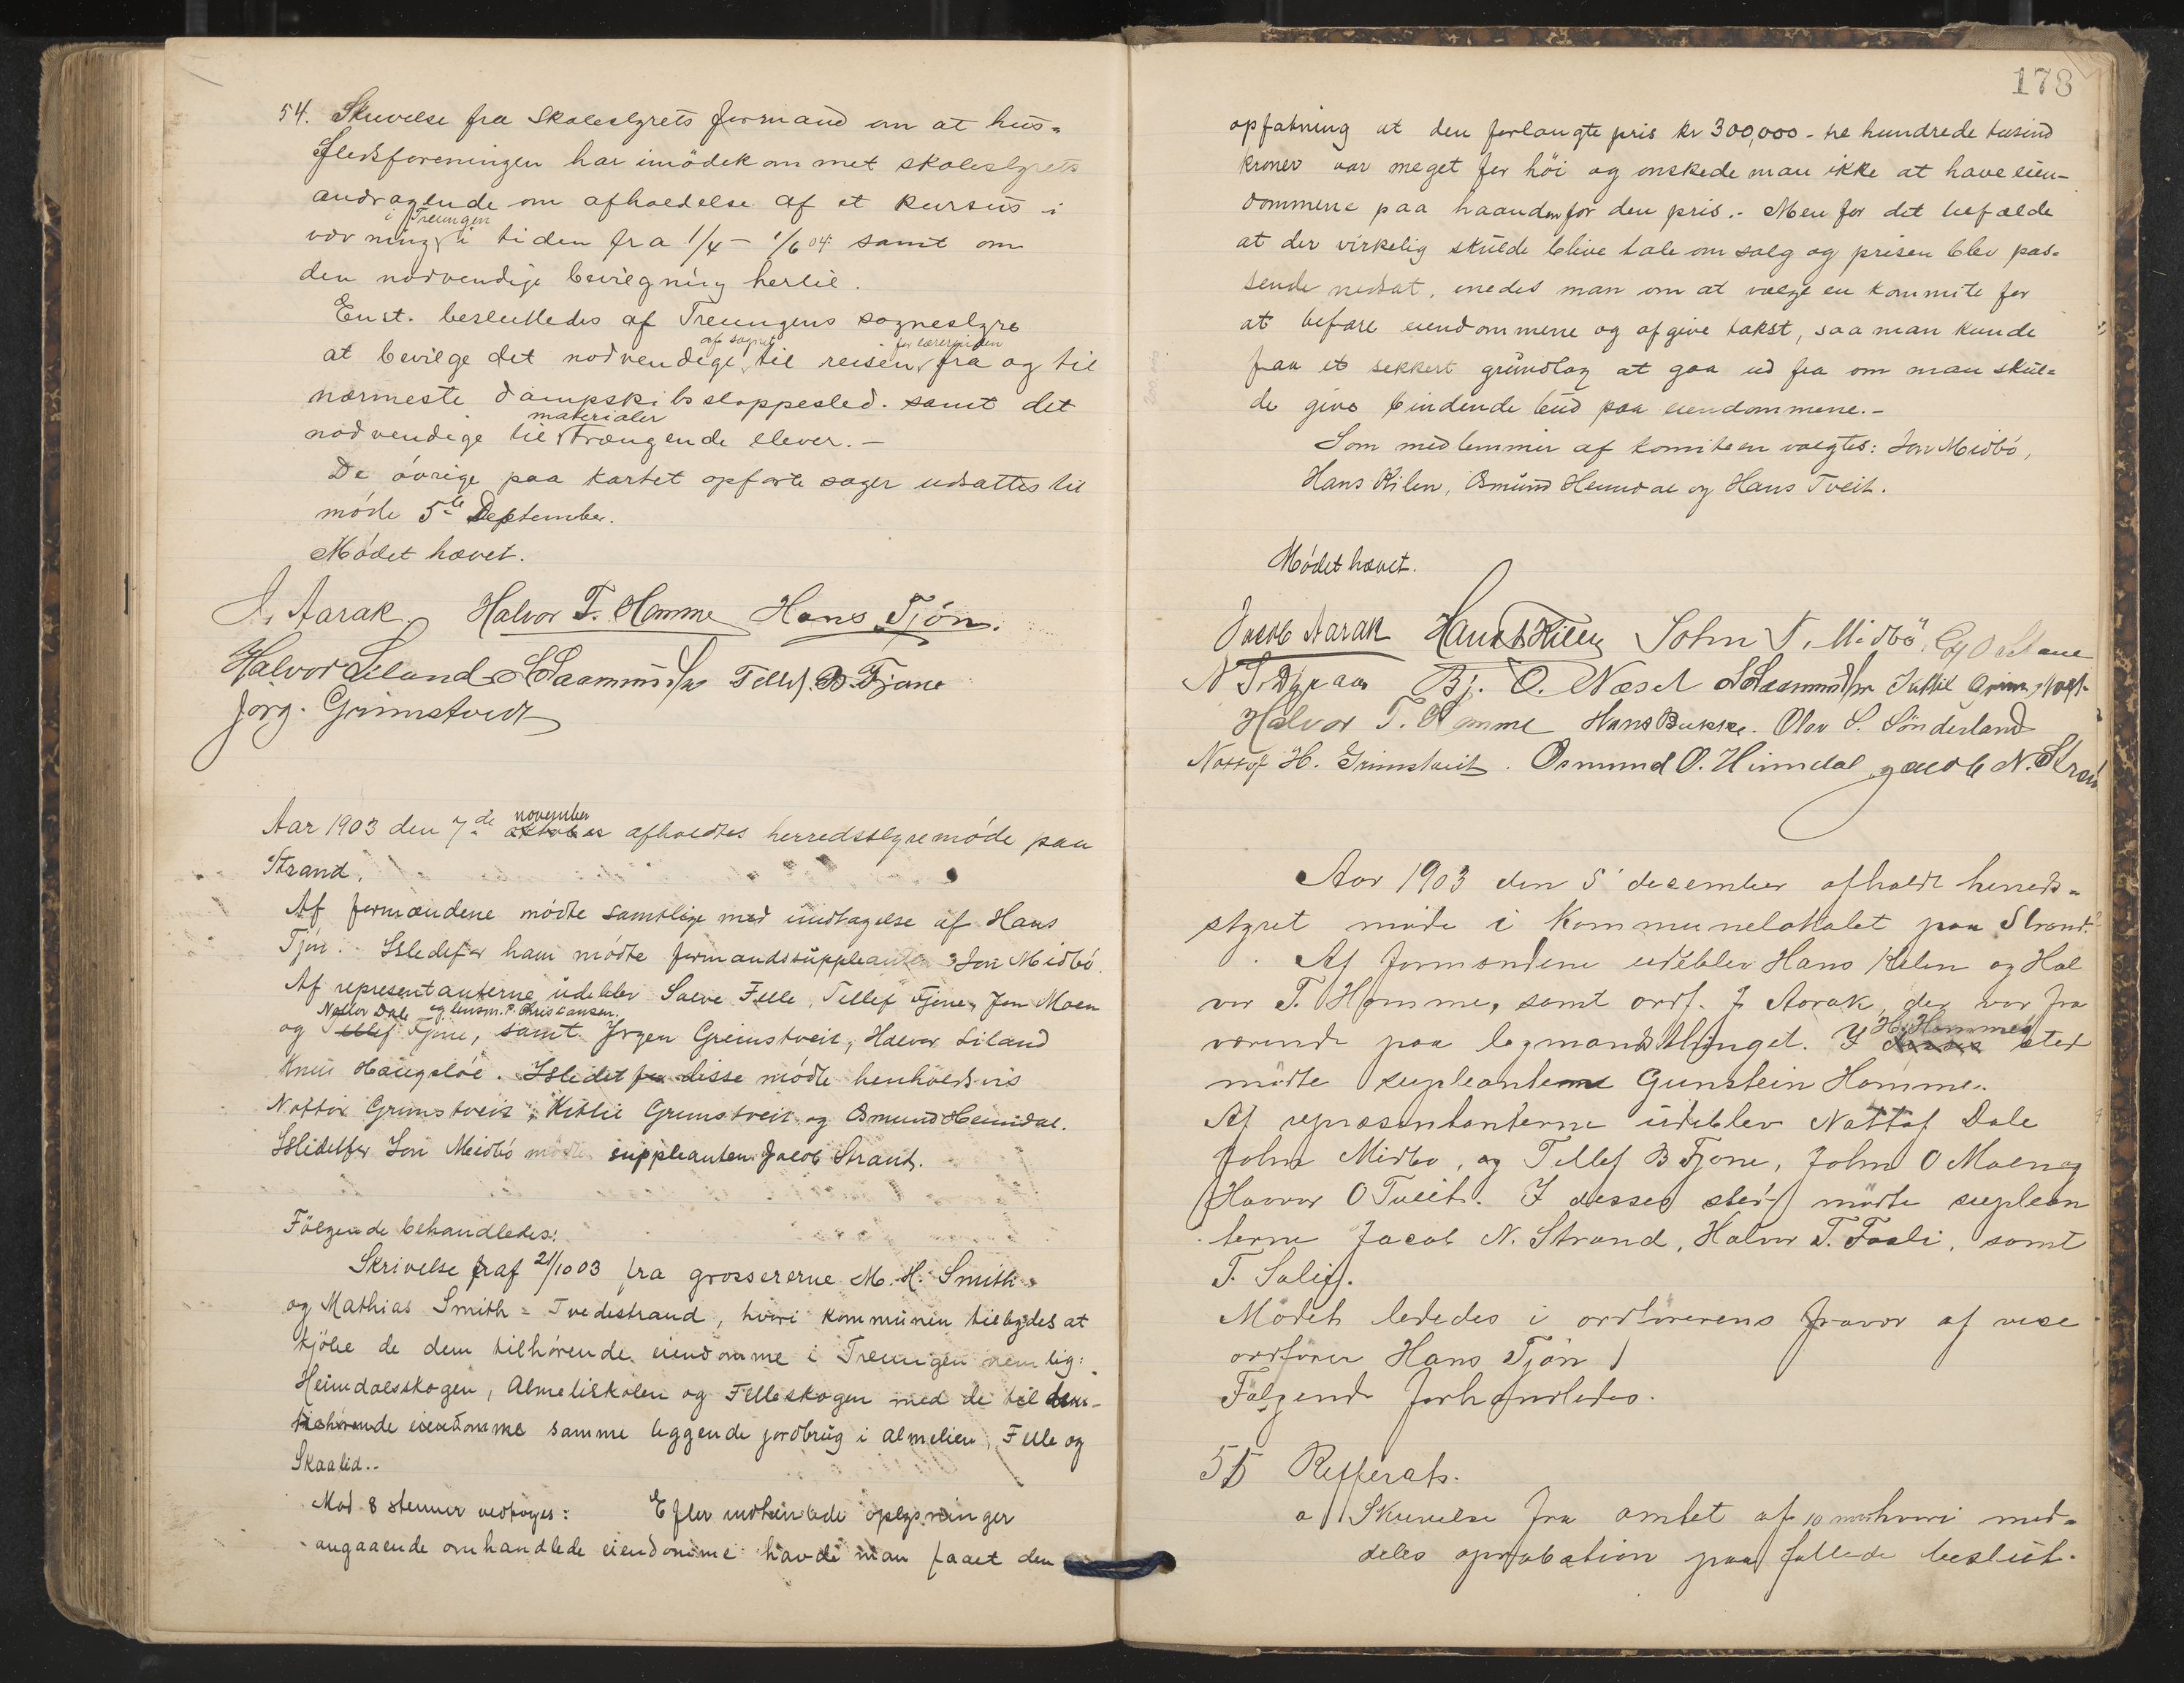 54. Skrivelse fra Skolestyrets formand om at hus-
flidsforeningen har imödekommet skolestyrets
andragende om afholdelse af et kursus i
i Treungen
vævning i tiden fra 1/4 - 1/6 04 samt om
den nødvendige bevilgning hertil.
Enst. besluttedes af Treungens sognestyre
af sognet for lærerinden
at bevilge det nødvendige til reisen fra og til
nærmeste dampskibsstoppested. samt det
materialer
nødvendige til trængende elever. -
De övrige paa kartet opförte sager udsattes til
möde 5te September.
Mödet hævet.
J. Aarak Halvor T. Homme Hans Tjön.
Halvor Liland Tellef B. Fjone
Jörg. Grimstvedt
Aar 1903 den 7de
november
oktober afholdtes herredsstyremöde paa
Strand.
Af formændene mödte samtlige med undtagelse af Hans
Tjön. Istedetfor ham mödte formandssuppleanten Jon Midbö.
Af representanterne udeblev Salve Felle, Tellef Fjone, Jon Moen
Nottov Dale og lensm. P. Christiansen.
og Tellef Fjone, samt Jörgen Grimstveit, Halvor Liland
Knut Haugsloé. Istedet for disse mödte henholdsvis
Nottov Grimstveit, Kittil Grimstveit og Osmund Heimdal.
Istedetfor Jon Meidbö mödte suppleanten Jacob Strand.
Fölgende behandledes:
Skrivelse af 21/10 03 fra grossererne M. H. Smith
og Mathias Smith = Tvedestrand, hvori kommunen tilbydes at
kjöbe de dem tilhörende eiendomme i Treungen nemlig:
Heimdalsskogen, Almeliskolen og Felleskogen med de til dem
tilhörende eiendomme samme liggende jordbrug i Almelien, Felle og
Skaalid..
Mod 8 stemmer vedtoges: Efter indhentede oplysninger
angaaende omhandlede eiendomme havde man faaet den
178
opfatning at den forlangte pris kr 300,000 - tre hundrede tusind
kroner var meget for höi og önskede man ikke at have eien-
dommene paa haanden for den pris. - Men for det tilfælde
at der virkelig skulde blive tale om salg og prisen blev pas-
sende nedsat, enedes man om at vælge en kommite for
at befare eiendommene og afgive takst, saa man kunde
faa et sikkert grundlag at gaa ud fra om man skul-
de give bindende bud paa eiendommene. -
Som medlemmer af komiteen valgtes: Jon Midbö,
Hans Kilen, Osmund Heimdal og Hans Tveit.
Mödet hævet.
Jacob Aarak Hans Kilen John T. Midbö
Bj. O. Næset Kittil Grimstveit
Halvor T. Homme Hans Bukke. Olav S. Sönderland
Nottof H. Grimstveit. Osmund O. Himdal Jacob N. Strand
Aar 1903 den 5 desember afholdt herreds-
styret möde i Kommunelokalet paa Strand.
Af formendene udeblev Hans Kilen og Hal
vor T. Homme, samt ordf. J Aarak, der var fra
værende paa lagmandsthinget. I
H. Hommes
disses sted
mödte supleanten Gunstein Homme.
Af representanterne udeblev Nottof Dale
John Midbo, og Tellef B Fjone, John O Moen og
Havvor O Tveit. I disses sted mödte suplean
terne Jacob N. Strand, Halvor T. Fosli, samt
T. Solief.
Mödet lededes i ordförerens fravær af vise
ordförer Hans Tjön
Fölgende forhandledes.
55 Refferats.
a Skrivelse fra amtet af 10 hvori med-
deles aprobation paa fattede beslut.